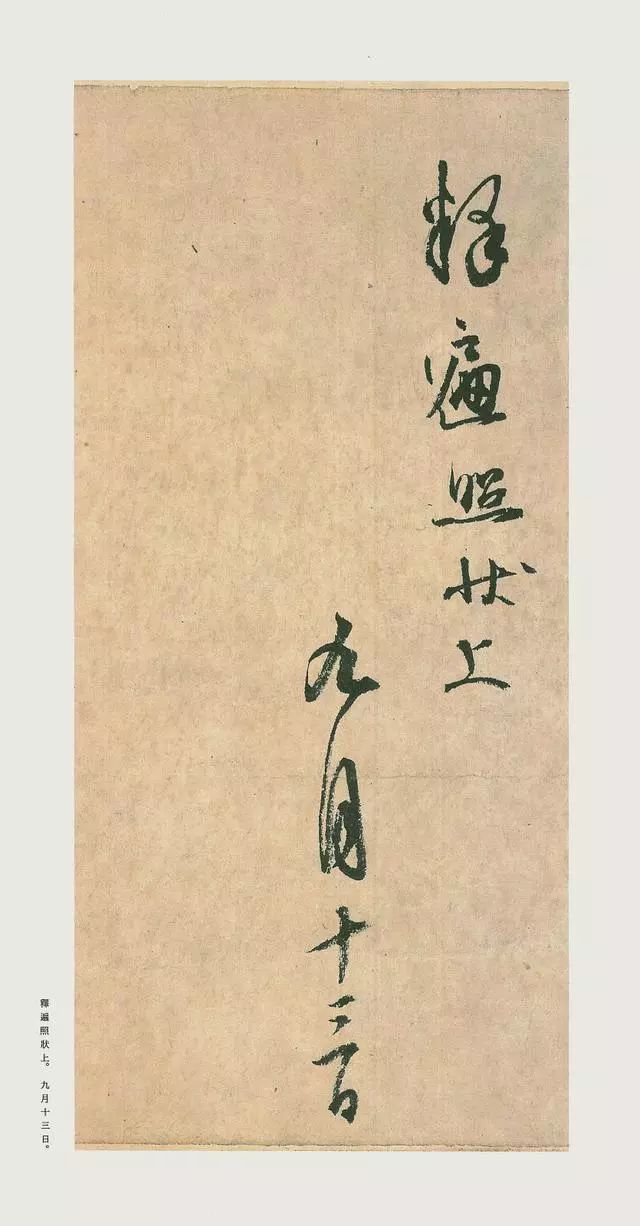 釋遍照状上
九月十三日
釋遍照狀上。九月十三日。